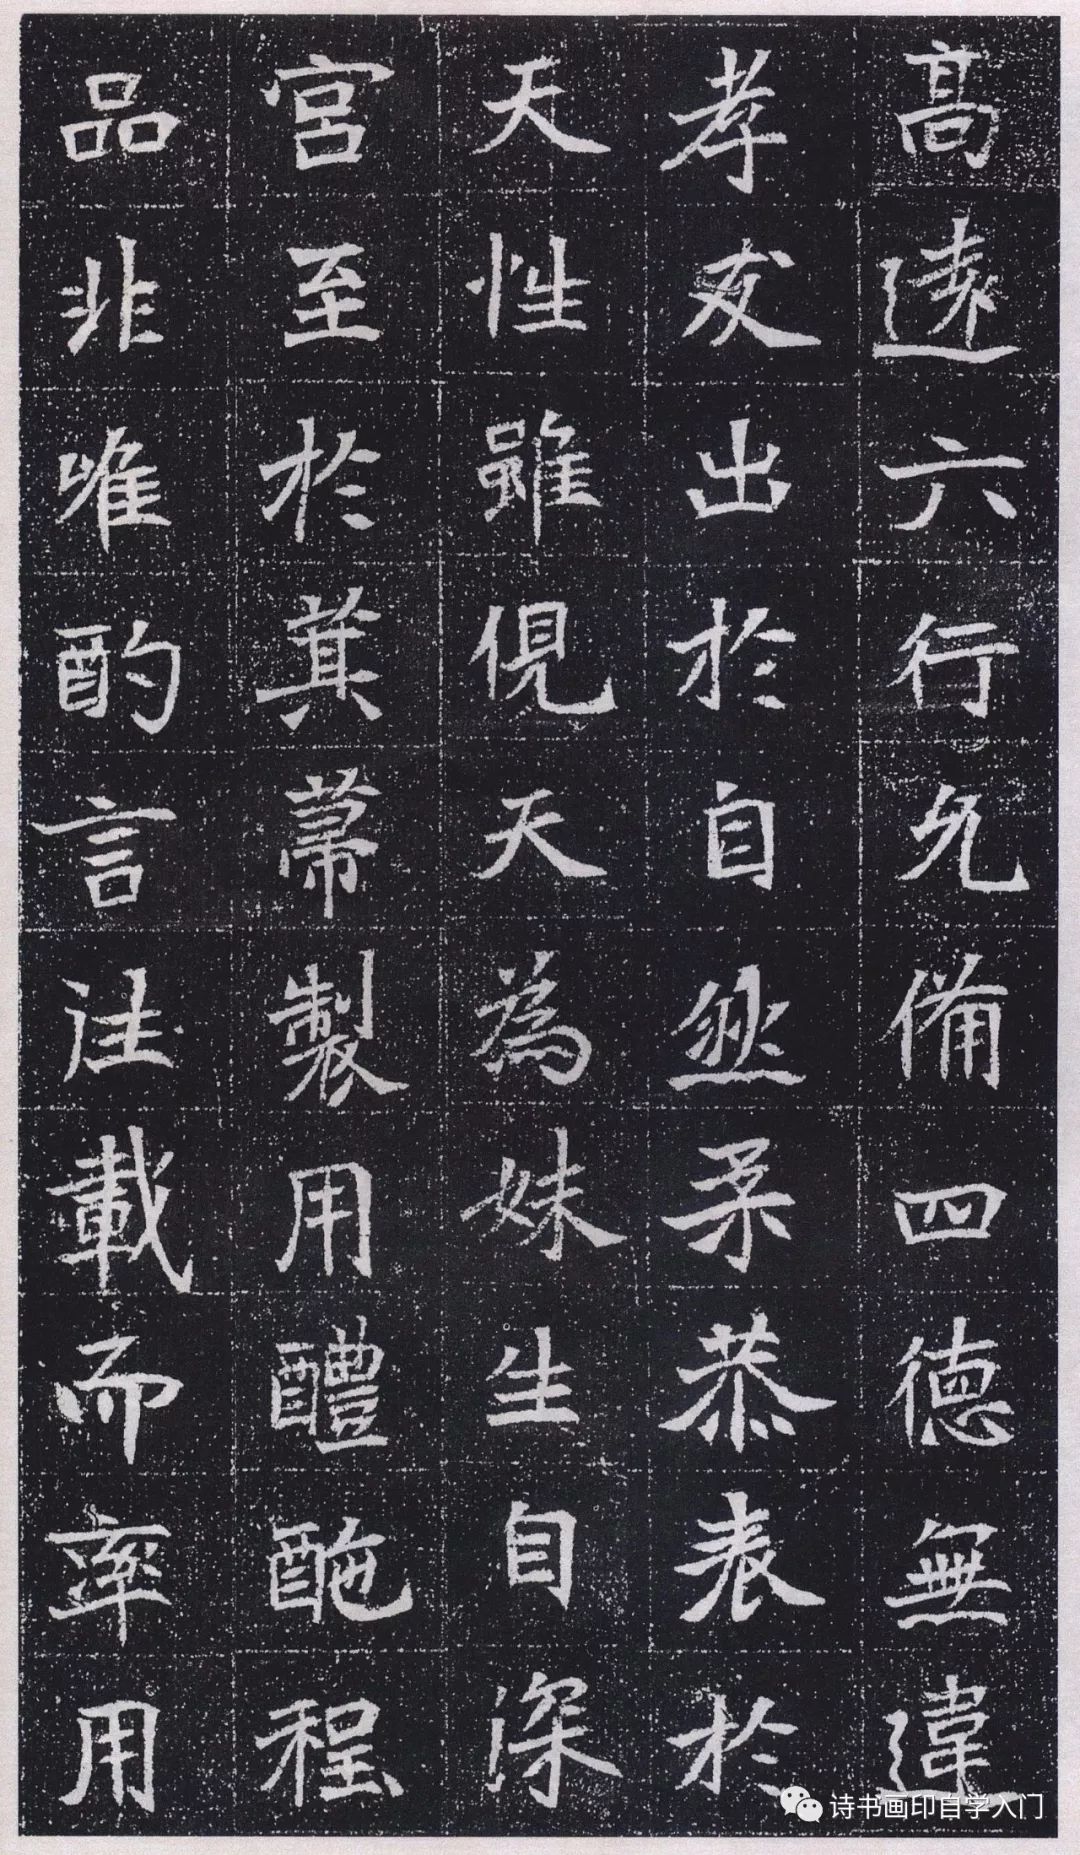 高遠六行允備四德無違
孝友出於自然柔恭表於
天性雖俔天為妹生自深
宮至於箕帚製用醴酏程
品非唯酌言往載而率用
诗书画印自学入门